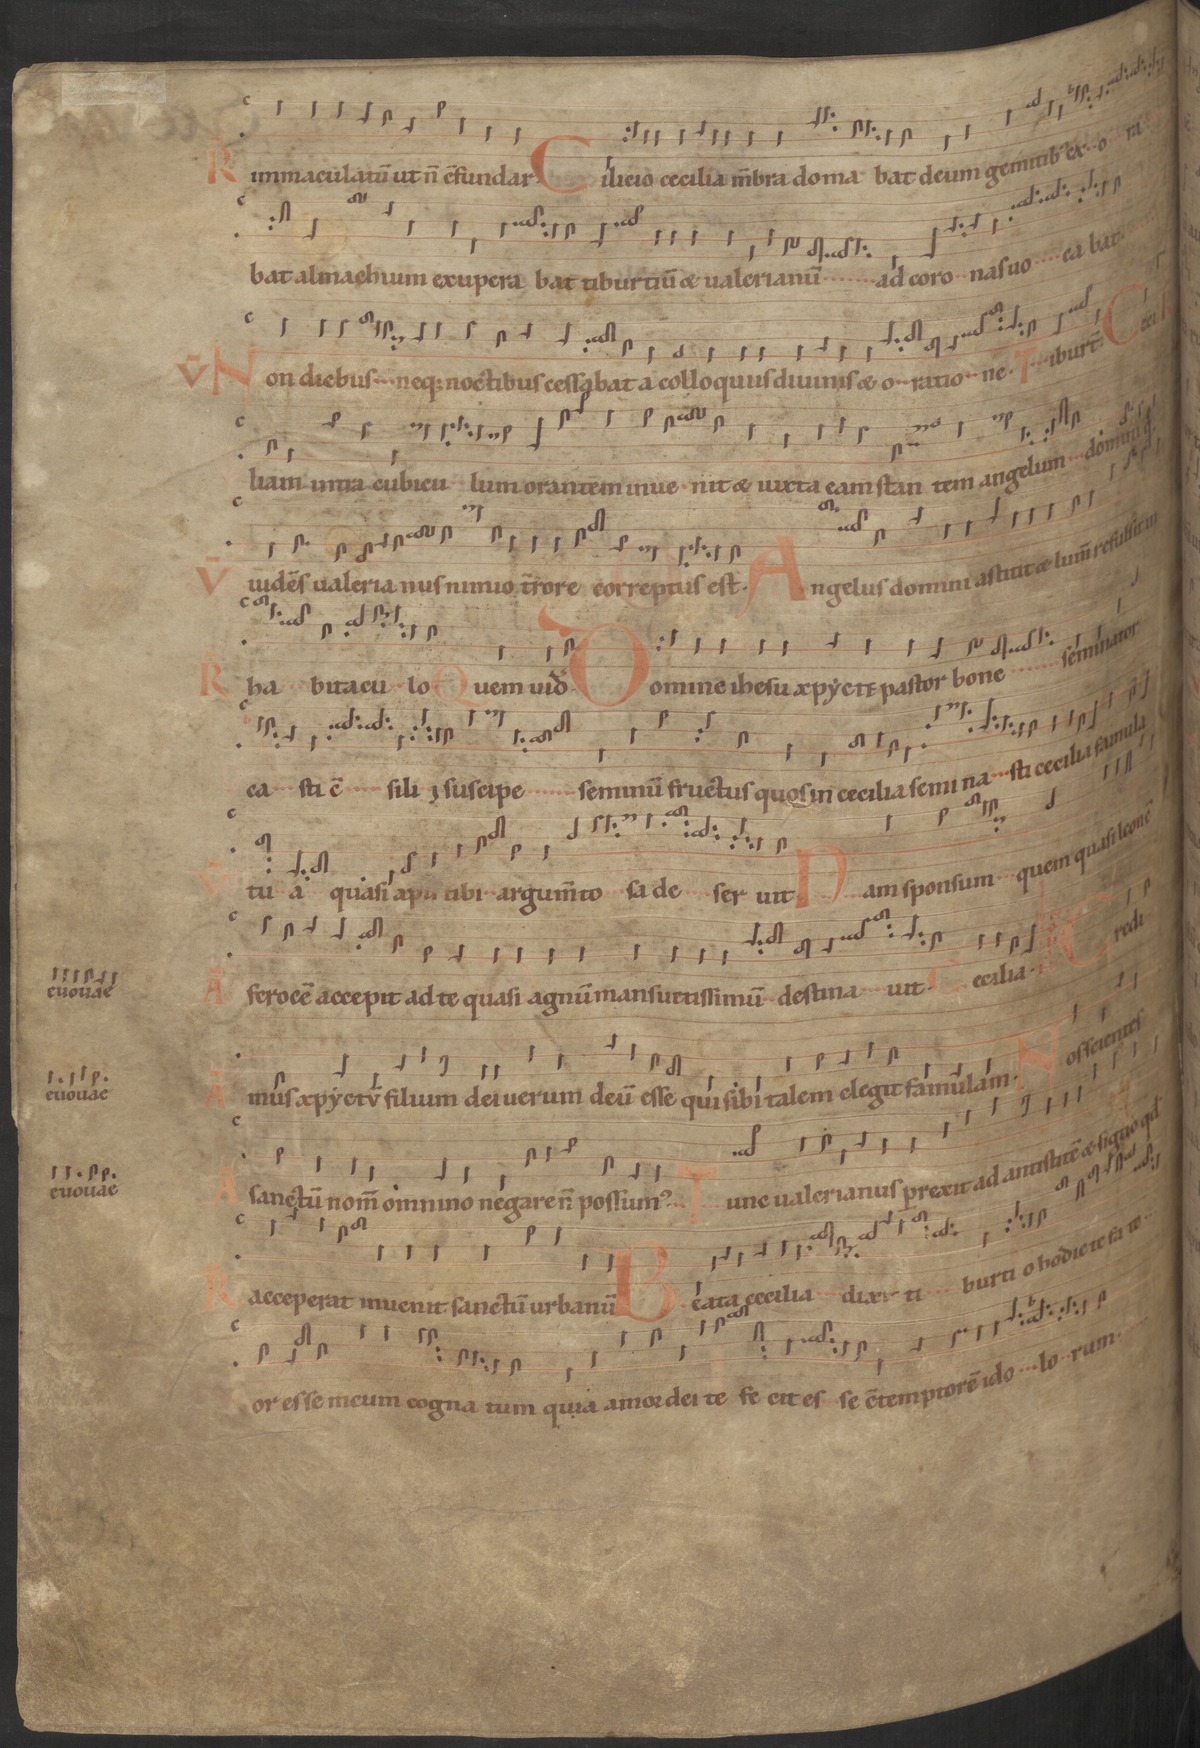 R immaculatū ut n̄ c̄fundar C ilicio cecilia m̄bra doma bat deum gemitib' ex o ra
bat almachium exupera bat tiburtiū & ualerianū ad coro nas uo ca bat
V̄ N on diebus neq; noctibus cessabat a colloquiis diuinis & o ratio ne T iburt̄ C eci
liam intra cubicu lum orantem inue nit & iuxta eam stan tem angelum domini q̄
V̄ uidēs ualeria nus nimio t̄rore correptus est A ngelus domini astitit & lum̄ refulsit in
R̄ ha bitacu lo Q uem uid̄ D omine ihesu xp̄e pastor bone seminator
ca sti c̄ silii suscipe seminū fructus quos in cecilia semi na sti cecilia famula
tu a quasi apis tibi argum̄to sa de ser uit N am sponsum quem quasi leonē
Ā ferocē accepit ad te quasi agnū mansuetissimū destina uit C ecilia C redi
euouae
Ā mus xp̄m filium dei uerum deū esse qui sibi talem elegit famulam N os scientes
euouae
A sanctū nom̄ omnino negare n̄ possum' T unc ualerianus prexit ad antistitē & signo qd
euouae
R acceperat inuenit sanctū urbanū B eata cecilia dixit ti burti o hodie te fa te
or esse meum cogna tum quia amor dei te fe cit es se c̄temptorē ido lo rum